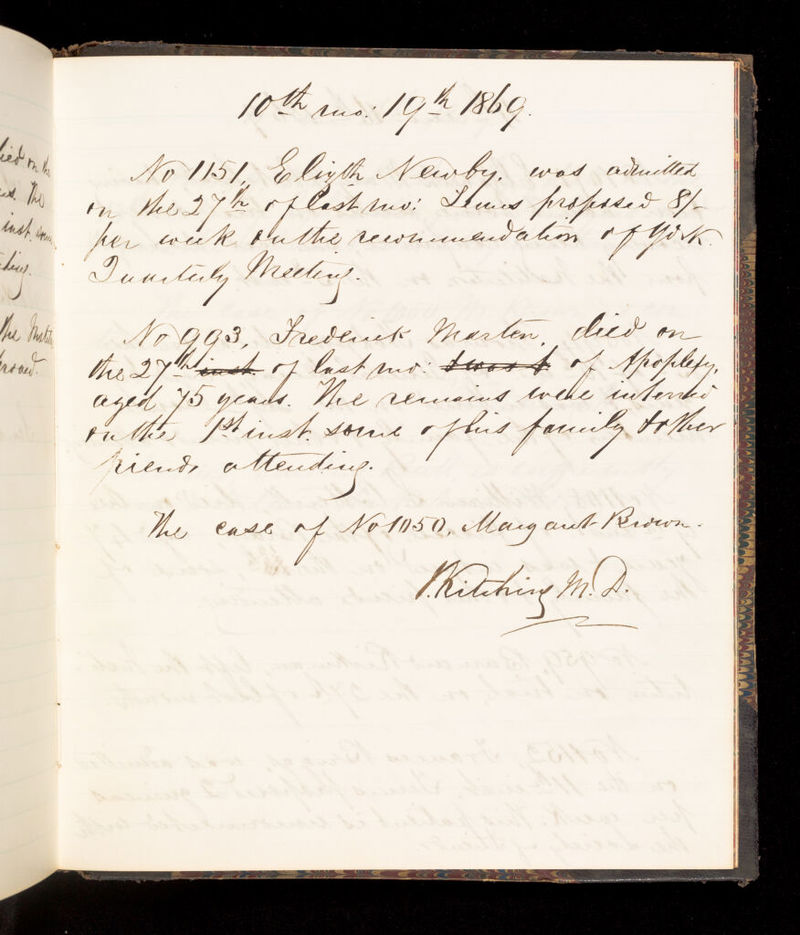 lied on the
The
inst. some
ding.
the
10th mo: 19th 1869.
No 1151, Elizth Newby. was admitted
on the 27th of last mo: Terms proposed 8/-
per week on the recommendation of York
Quarterly Meeting.
No 993, Frederick Marten, died on
the 27th inst. of last mo: of Apoplexy,
aged 75 years. The remains were interred
on the 1st inst. some of his family & other
friends attending.
The case of No 1050, Margaret Brown.
J. Kitching M.D.